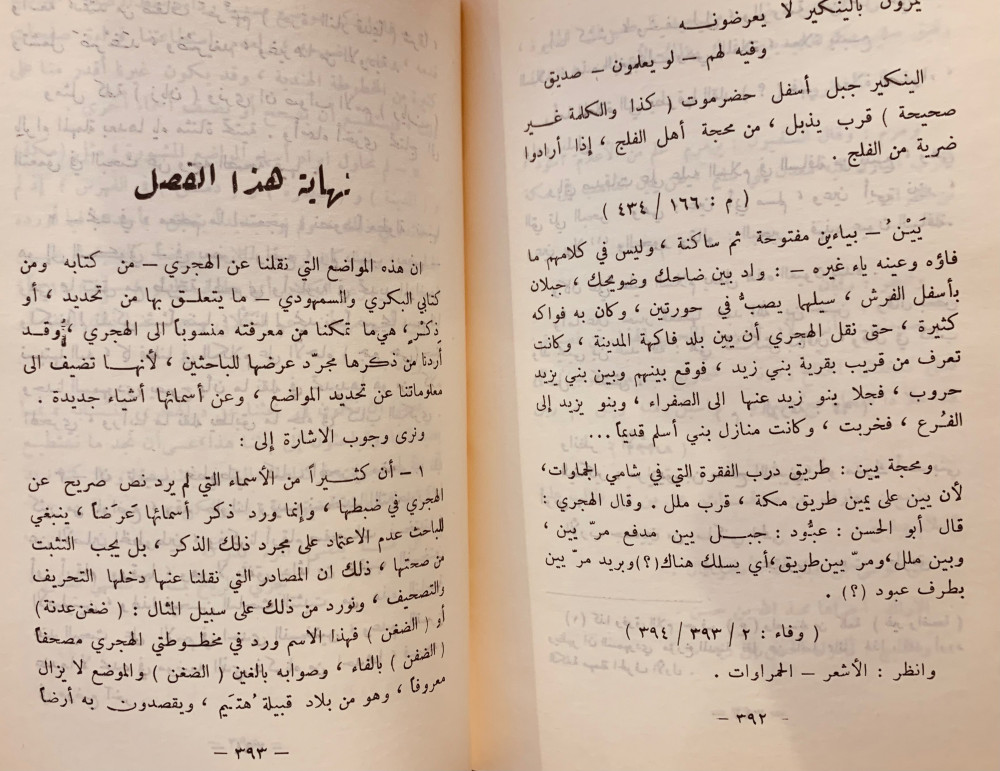 يمرون بالينكير لا يعرضونه
وفيه لهم – لو يعلمون – صديق
الينكير جبل أسفل حضرموت ( كذا والكلمة غير
صحيحة ) قرب يذبل ، من محجة أهل الفلج ، إذا أرادوا
ضرية من الفلج .
( م : ١٦٦ / ٤٣٤ )
يَيْنُ – بياءين مفتوحة ثم ساكنة ، وليس في كلامهم ما
فاؤه وعينه ياء غيره – : واد بين ضاحك وضويحك ، جبلان
بأسفل الفرش ، سيلهما يصبُّ في حورتين ، وكان به فواكه
كثيرة ، حتى نقل الهجري أن يين بلد فاكهة المدينة ، وكانت
تعرف من قريب بقرية بني زيد ، فوقع بينهم وبين بني يزيد
حروب ، فجلا بنو زيد عنها الى الصفراء ، وبنو يزيد إلى
الفُرع ، فخربت ، وكانت منازل بني أسلم قديماً...
ومحجة يين : طريق درب الفقرة التي في شامي الجماوات،
لأن يين على يمين طريق مكة ، قرب ملل . وقال الهجري :
قال أبو الحسن : عبُّود : جبل يين مدفع مرّ يين ،
وبين ملل،ومرّ يين طريق،أي يسلك هناك(؟)ويريد مرّ يين
بطرف عبود (؟) .
( وفاء : ٢ / ٣٩٣ / ٣٩٤ )
وانظر : الأشعر – الحمراوات .
– ٣٩٢ –
نهاية هذا الفصل
ان هذه المواضع التي نقلنا عن الهجري – من كتابه ومن
كتابي البكري والسمهودي – ما يتعلق بها من تحديد ، أو
ذِكْرٍ ، هي ما تمكنا من معرفته منسوباً الى الهجري ، وقد
أردنا من ذكرها مجرّد عرضها للباحثين ، لأنها تضيف الى
معلوماتنا عن تحديد المواضع ، وعن أسمائها أشياء جديدة .
ونرى وجوب الاشارة إلى :
١ – أن كثيراً من الأسماء التي لم يرد نص صريح عن
الهجري في ضبطها ، وإنما ورد ذكر أسمائها عَرَضاً ، ينبغي
للباحث عدم الاعتماد على مجرد ذلك الذكر ، بل يجب التثبت
من صحتها ، ذلك ان المصادر التي نقلنا عنها دخلها التحريف
والتصحيف ، ونورد من ذلك على سبيل المثال : ( ضغن عدنة)
أو ( الضغن ) فهذا الاسم ورد في مخطوطتي الهجري مصحفاً
( الضفن ) بالفاء ، وصوابه بالغين ( الضغن ) والموضع لا يزال
معروفاً ، وهو من بلاد قبيلة هُتَيم ، ويقصدون به أرضاً
– ٣٩٣ –